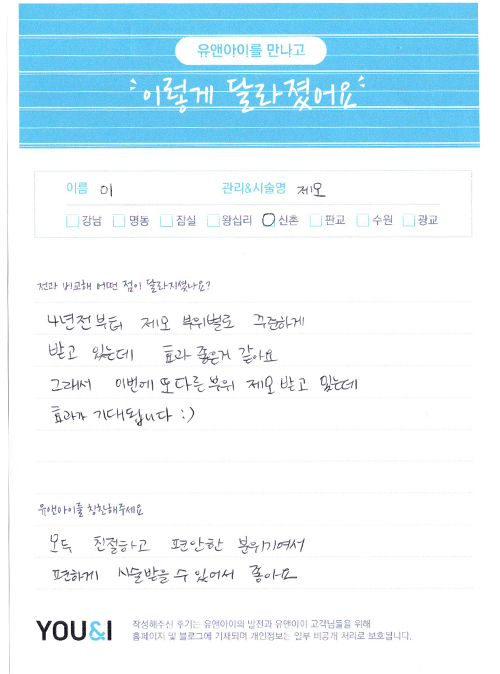 유앤아이를 만나고
이렇게 달라졌어요
이름 이 관리&시술명 제모
강남 명동 잠실 왕십리 신촌 판교 수원 광교
전과 비교해 어떤 점이 달라지셨나요?
4년전부터 제모 부위별로 꾸준하게
받고 있는데 효과 좋은거 같아요
그래서 이번에 또다른부위 제모받고 있는데
효과가 기대됩니다 :)
유앤아이를 칭찬해주세요
모두 친절하고 편안한 분위기여서
편하게 시술받을 수 있어서 좋아요
YOU&I
작성해주신 후기는 유앤아이의 발전과 유앤아이 고객님들을 위해
홈페이지 및 블로그에 기재되며 개인정보는 일부 비공개 처리로 보호됩니다.